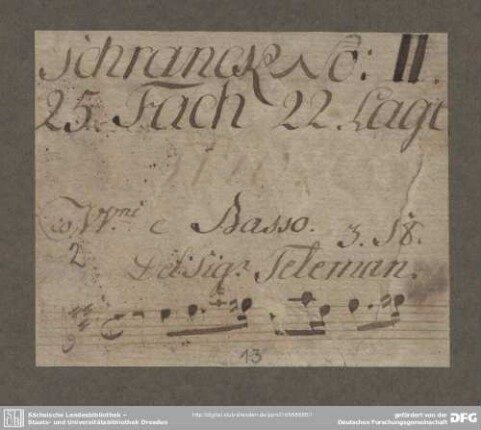 Schranck No: II.
25. Fach 22. Lagt
VV.ni e Basso. 3. St.
2
Del Sigr Teleman.
13
Sächsische Landesbibliothek –
Staats- und Universitätsbibliothek Dresden
gefördert von der
Deutschen Forschungsgemeinschaft
DFG